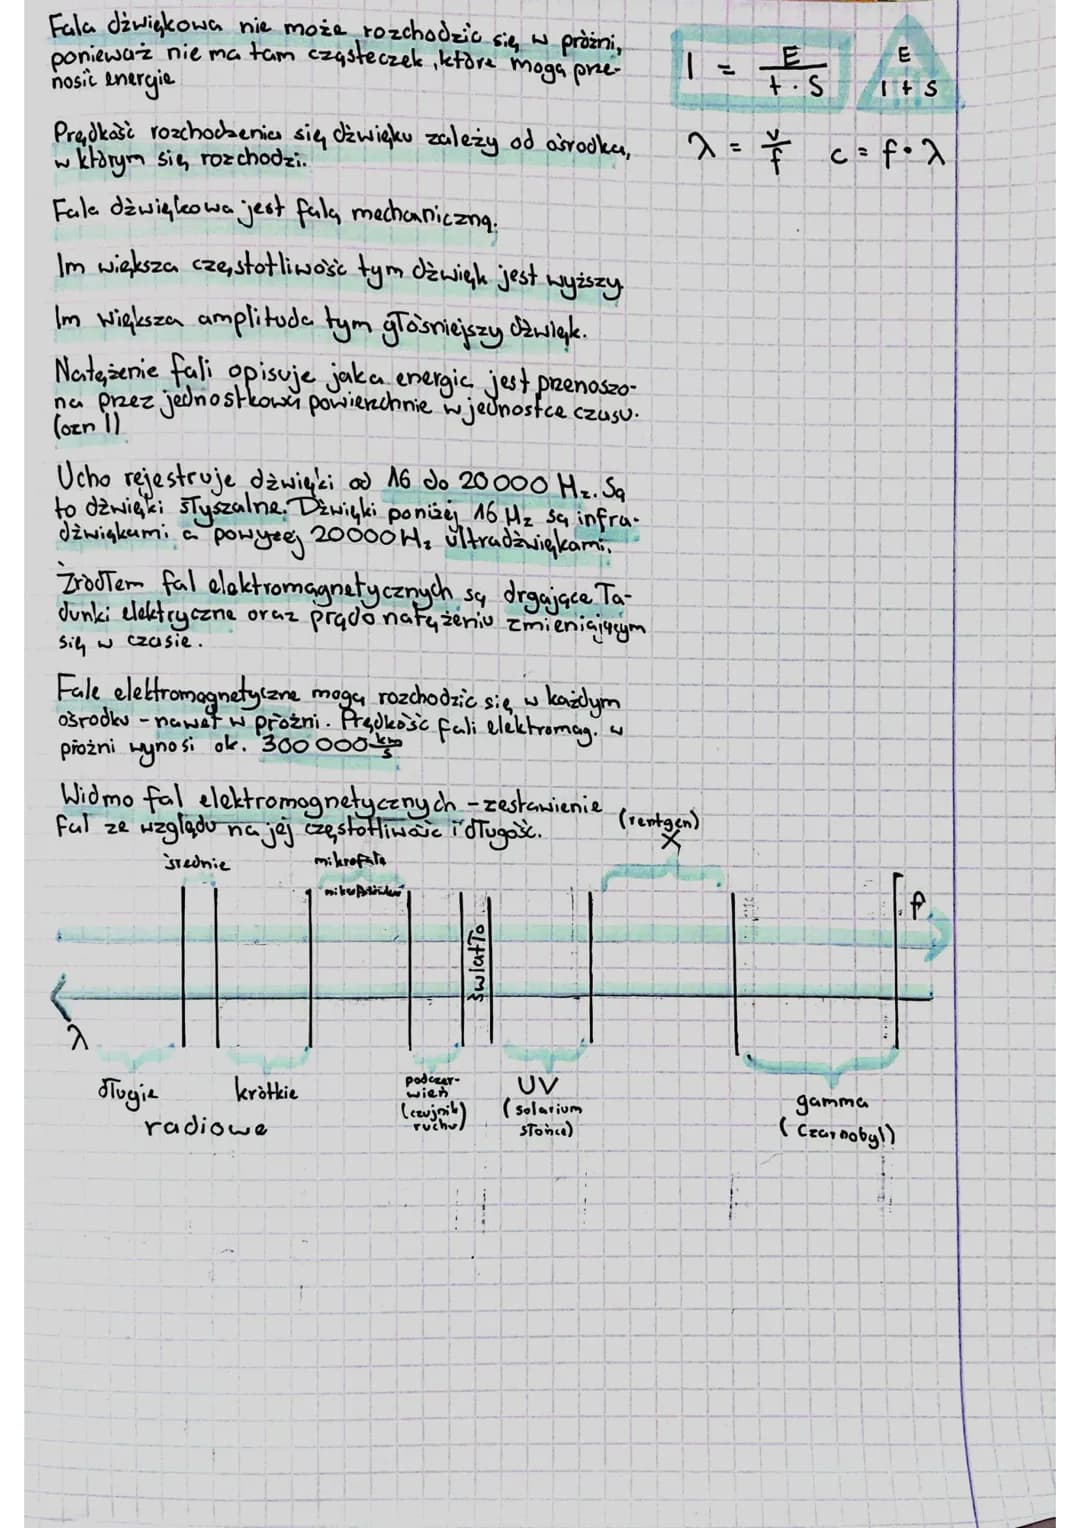 Fala dźwiękowa nie może rozchodzić się w próżni,
ponieważ nie ma tam cząsteczek, które mogą prze-
nosić energie
I = E / t · S
E
I t S
Prędkość rozchodzenia się dźwięku zależy od ośrodka,
w którym się rozchodzi.
λ = v / f    c = f · λ
Fala dźwiękowa jest falą mechaniczną.
Im większa częstotliwość tym dźwięk jest wyższy.
Im większa amplituda tym głośniejszy dźwięk.
Natężenie fali opisuje jaka energia jest przenoszo-
na przez jednostkową powierzchnie w jednostce czasu.
(ozn I)
Ucho rejestruje dźwięki od 16 do 20 000 Hz. Są
to dźwięki słyszalne. Dźwięki poniżej 16 Hz są infra-
dźwiękami a powyżej 20000 Hz ultradźwiękami.
Źródłem fal elektromagnetycznych są drgające ła-
dunki elektryczne oraz prąd o natężeniu zmieniającym
się w czasie.
Fale elektromagnetyczne mogą rozchodzić się w każdym
ośrodku - nawet w próżni. Prędkość fali elektromag. w
próżni wynosi ok. 300 000 km/s
Widmo fal elektromagnetycznych - zestawienie
fal ze względu na jej częstotliwość i długość.
(rentgen)
X
średnie
mikrofala
f
światło
λ
długie
krótkie
radiowe
podczer-
wień
(czujnik
ruchu)
UV
(solarium
słońce)
gamma
(Czarnobyl)